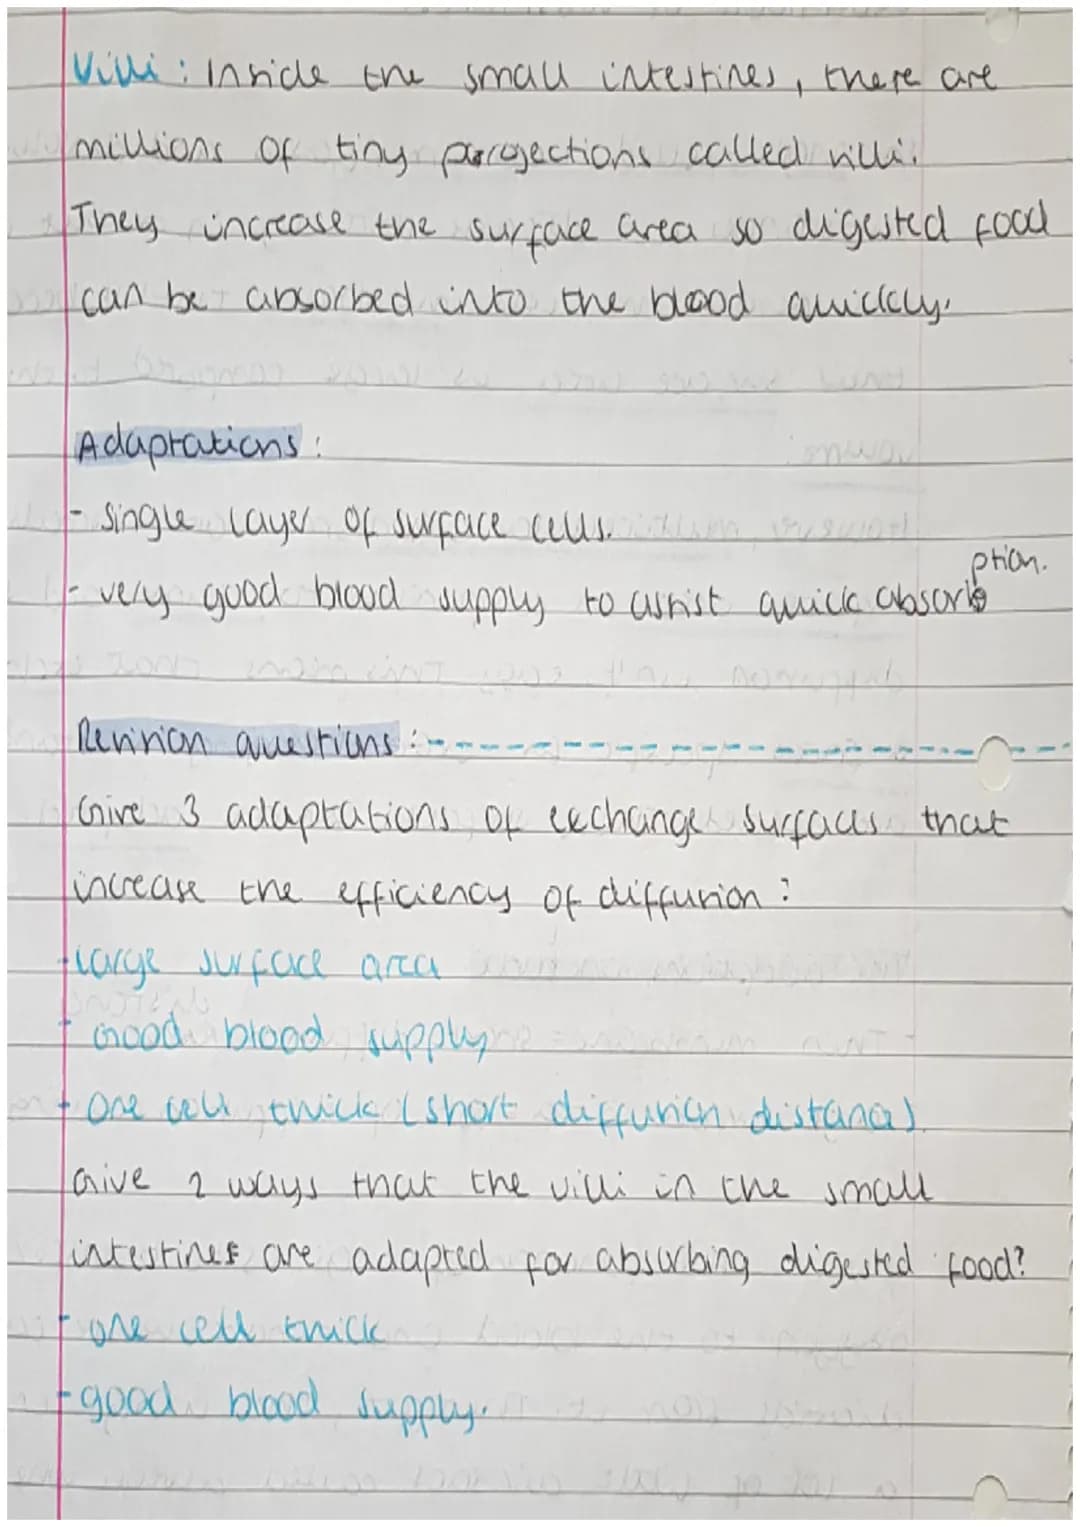 Villi : Inside the small intestines, there are
millions of tiny porojections called villi.
They increase the surface area so digested food
can be absorbed into the blood quickly.
Adaptations :
- single layer of surface cells.
- very good blood supply to assist quick absorbption.
Revision questions :
Give 3 adaptations of exchange surfaces that
increase the efficiency of diffusion :
- large surface area
- Good blood supply
- One cell thick (short diffusion distance).
Give 2 ways that the villi in the small
intestines are adapted for absorbing digested food?
- one cell thick
- good blood supply.